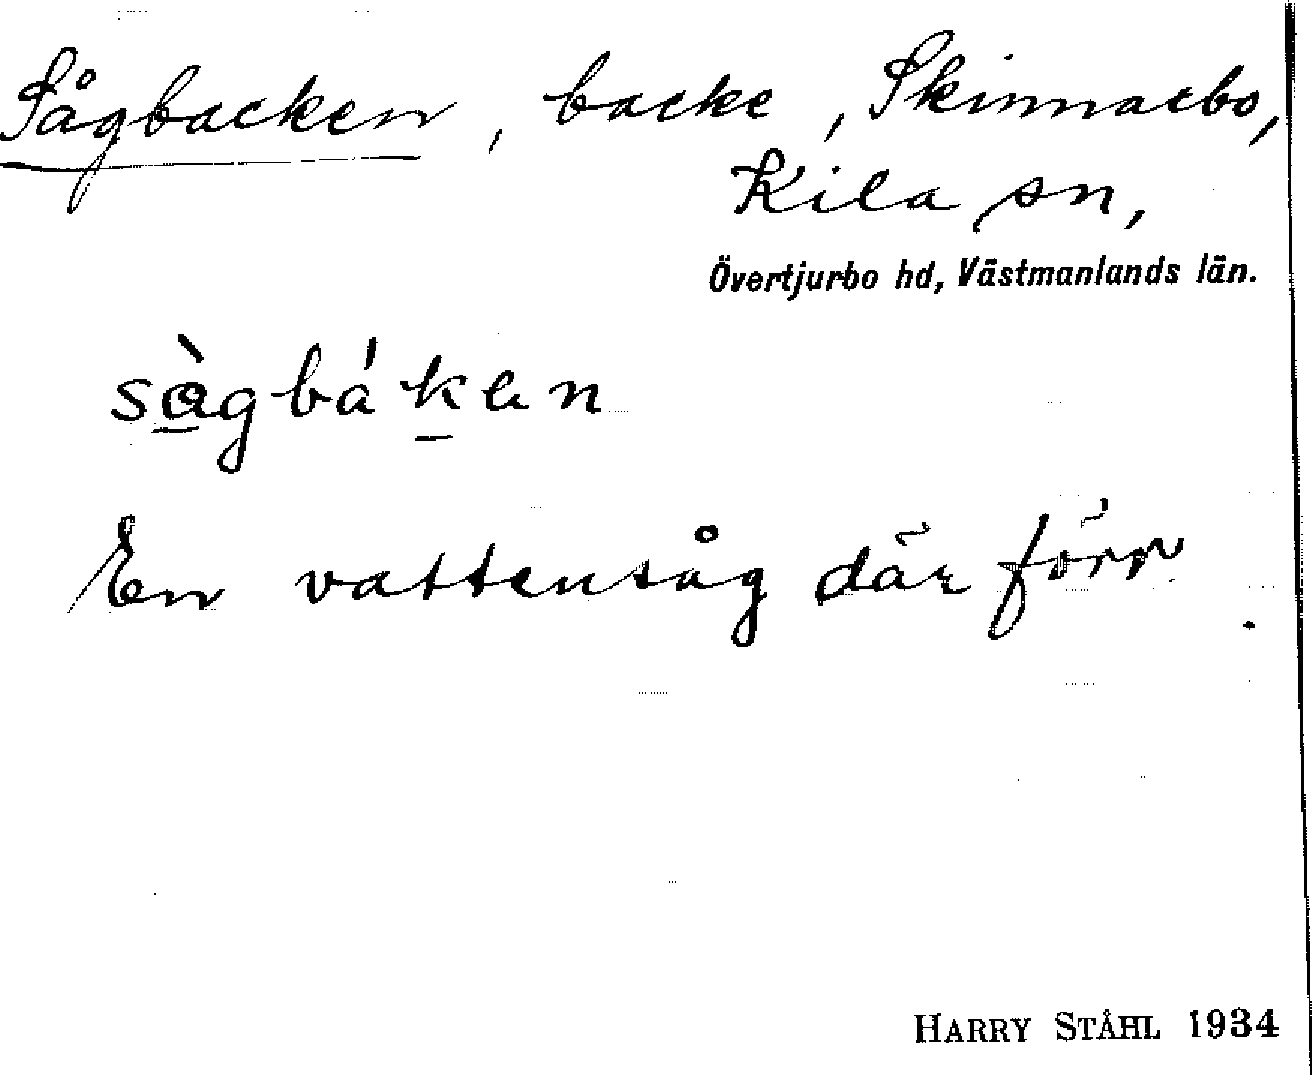 Sågbacken, backe, Skinnarbo,
Kila sn,
Övertjurbo hd, Västmanlands län.
sàgbáken
En vattensåg där förr.
HARRY STÅHL 1934